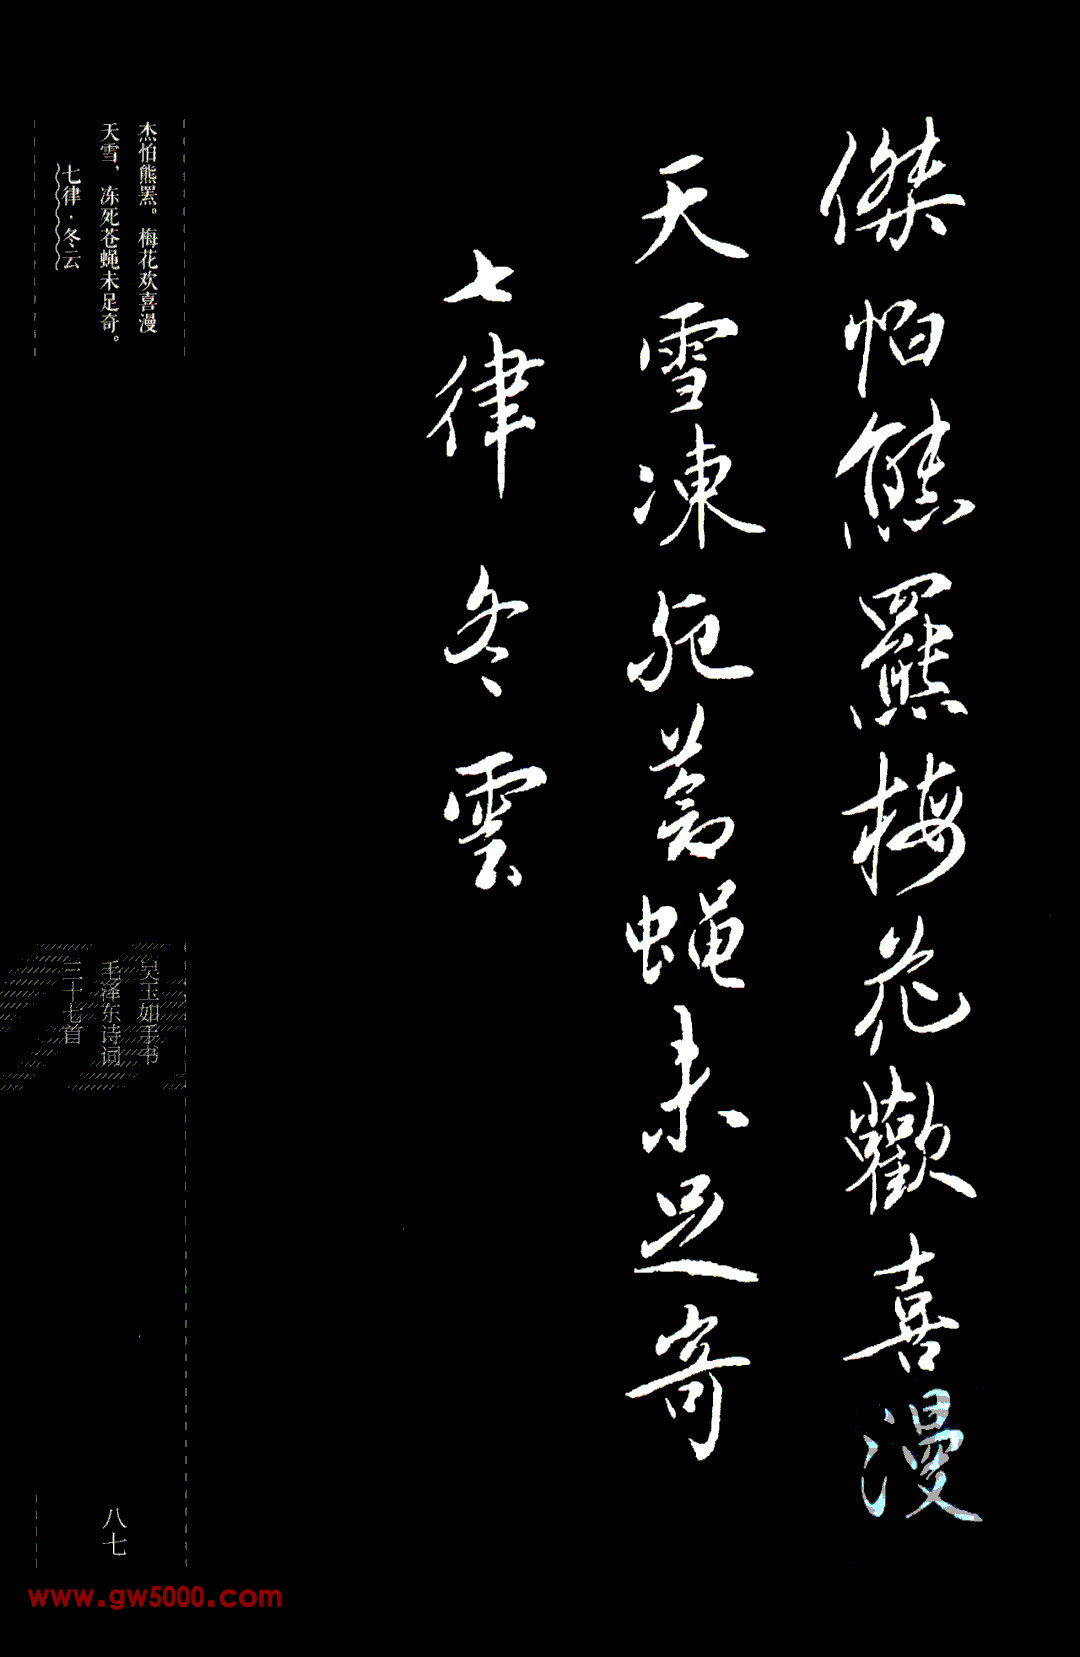 傑怕熊羆梅花歡喜漫
天雪凍死蒼蠅未足奇
七律冬雲
杰怕熊罴。梅花欢喜漫
天雪，冻死苍蝇未足奇。
七律·冬云
吴玉如手书
毛泽东诗词
三十七首
八七
www.gw5000.com